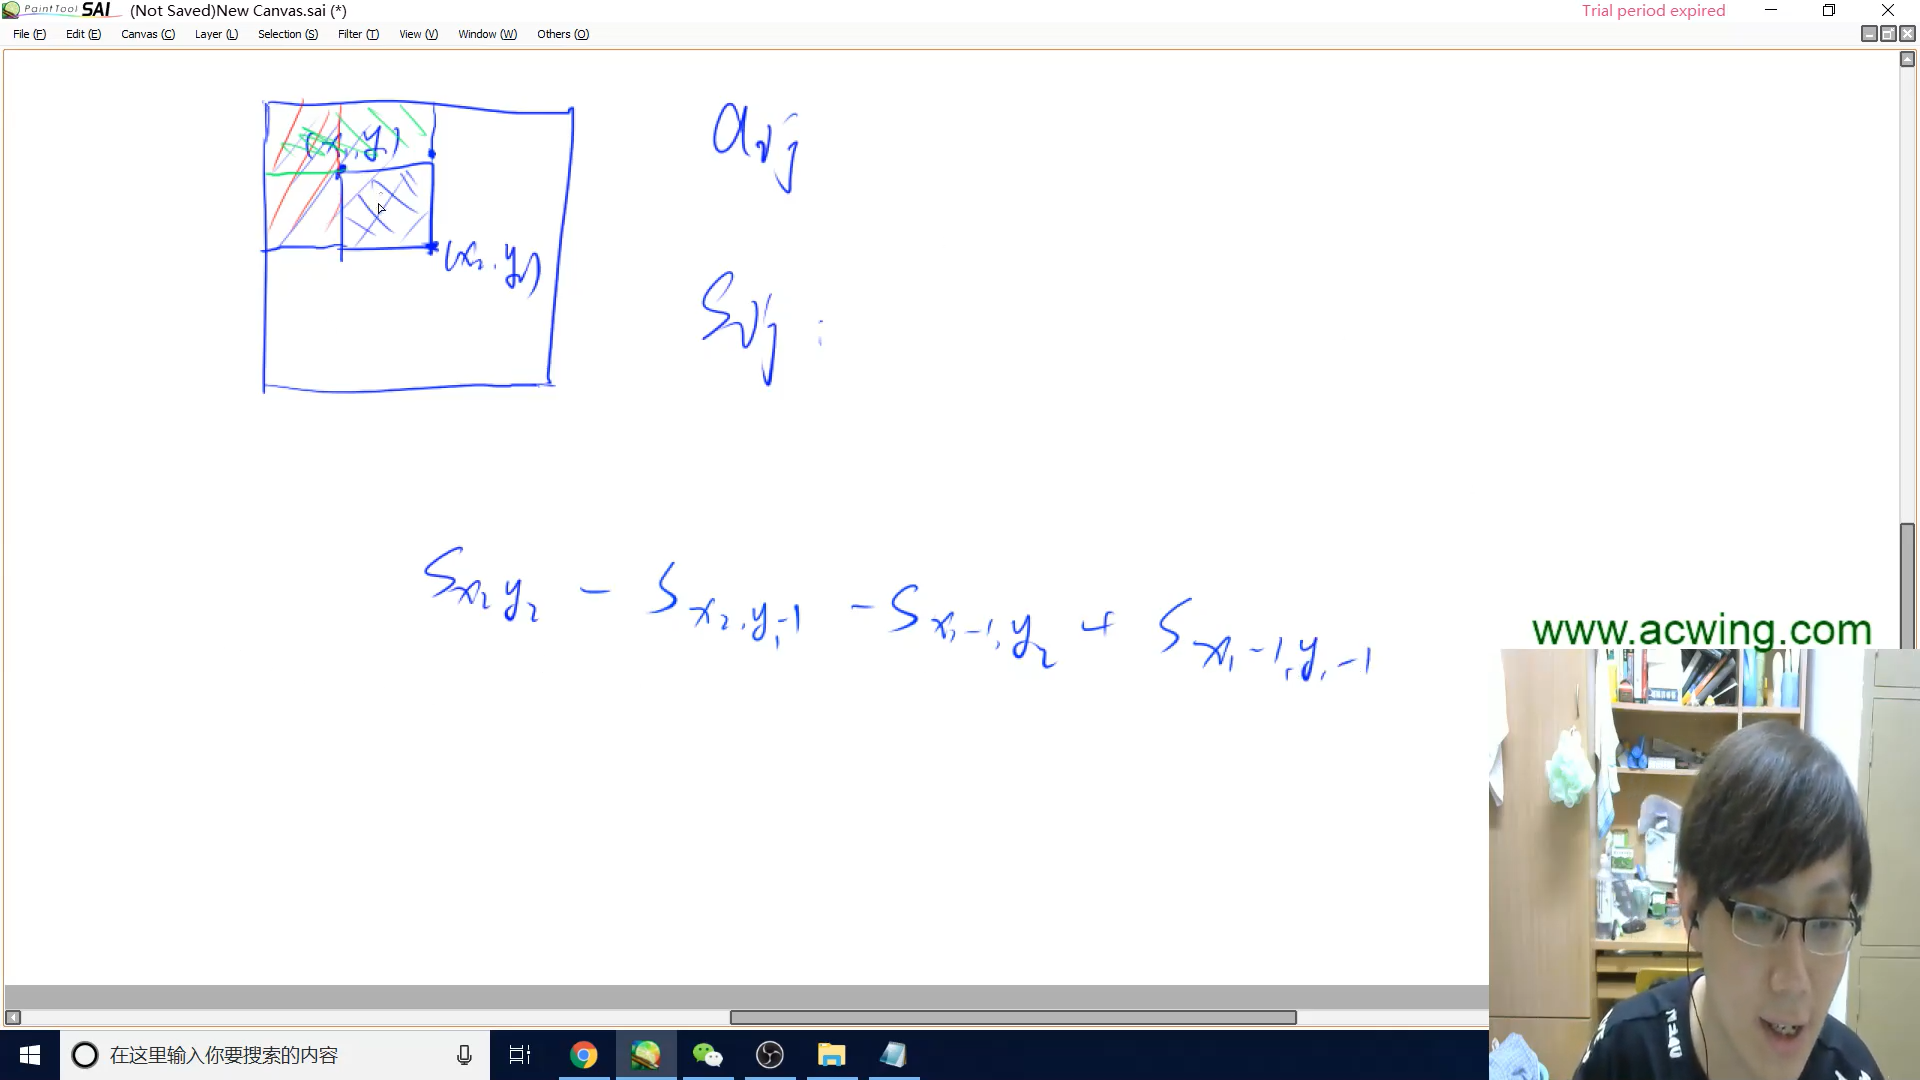 PaintTool SAI (Not Saved)New Canvas.sai (*) Trial period expired
File (F) Edit (E) Canvas (C) Layer (L) Selection (S) Filter (T) View (V) Window (W) Others (O)
a i,j
(x₁, y₁)
(x₂, y₂)
S i,j :
S x₂ y₂ - S x₂, y₁-1 - S x₁-1, y₂ + S x₁-1, y₁-1
www.acwing.com
在这里输入你要搜索的内容